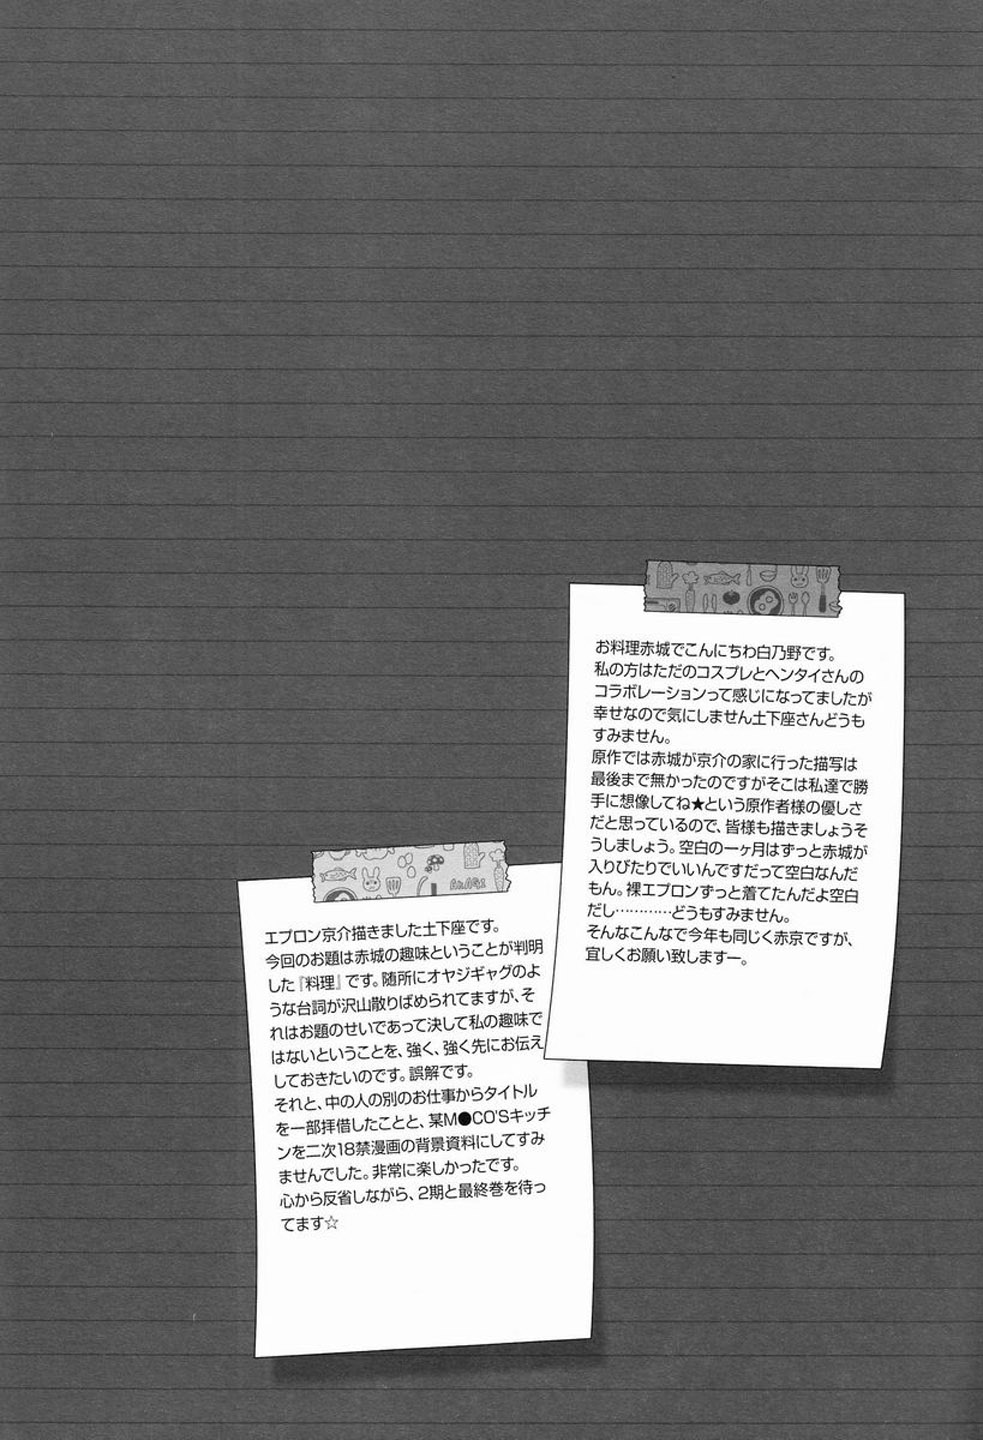 お料理赤城でこんにちわ白乃野です。
私の方はただのコスプレとヘンタイさんの
コラボレーションって感じになってましたが
幸せなので気にしません土下座さんどうも
すみません。
原作では赤城が京介の家に行った描写は
最後まで無かったのですがそこは私達で勝
手に想像してね★という原作者様の優しさ
だと思っているので、皆様も描きましょうそ
うしましょう。空白の一ヶ月はずっと赤城が
入りびたりでいいんですだって空白なんだ
もん。裸エプロンずっと着てたんだよ空白
だし…………どうもすみません。
そんなこんなで今年も同じく赤京ですが、
宜しくお願い致しますー。
AkAGi
エプロン京介描きました土下座です。
今回のお題は赤城の趣味ということが判明
した『料理』です。随所にオヤジギャグのよ
うな台詞が沢山散りばめられてますが、そ
れはお題のせいであって決して私の趣味で
はないということを、強く、強く先にお伝え
しておきたいのです。誤解です。
それと、中の人の別のお仕事からタイトル
を一部拝借したことと、某M●CO'Sキッチ
ンを二次18禁漫画の背景資料にしてすみ
ませんでした。非常に楽しかったです。
心から反省しながら、2期と最終巻を待っ
てます☆